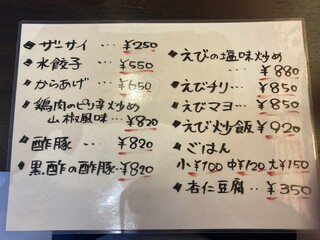 ザーサイ … ¥250
水餃子 … ¥550
からあげ … ¥650
鶏肉のピリ辛炒め
山椒風味 … ¥820
酢豚 … ¥820
黒酢の酢豚 … ¥820
えびの塩味炒め
… ¥880
えびチリ … ¥850
えびマヨ … ¥850
えび炒飯 ¥920
ごはん
小¥100 中¥120 大¥150
杏仁豆腐 … ¥350